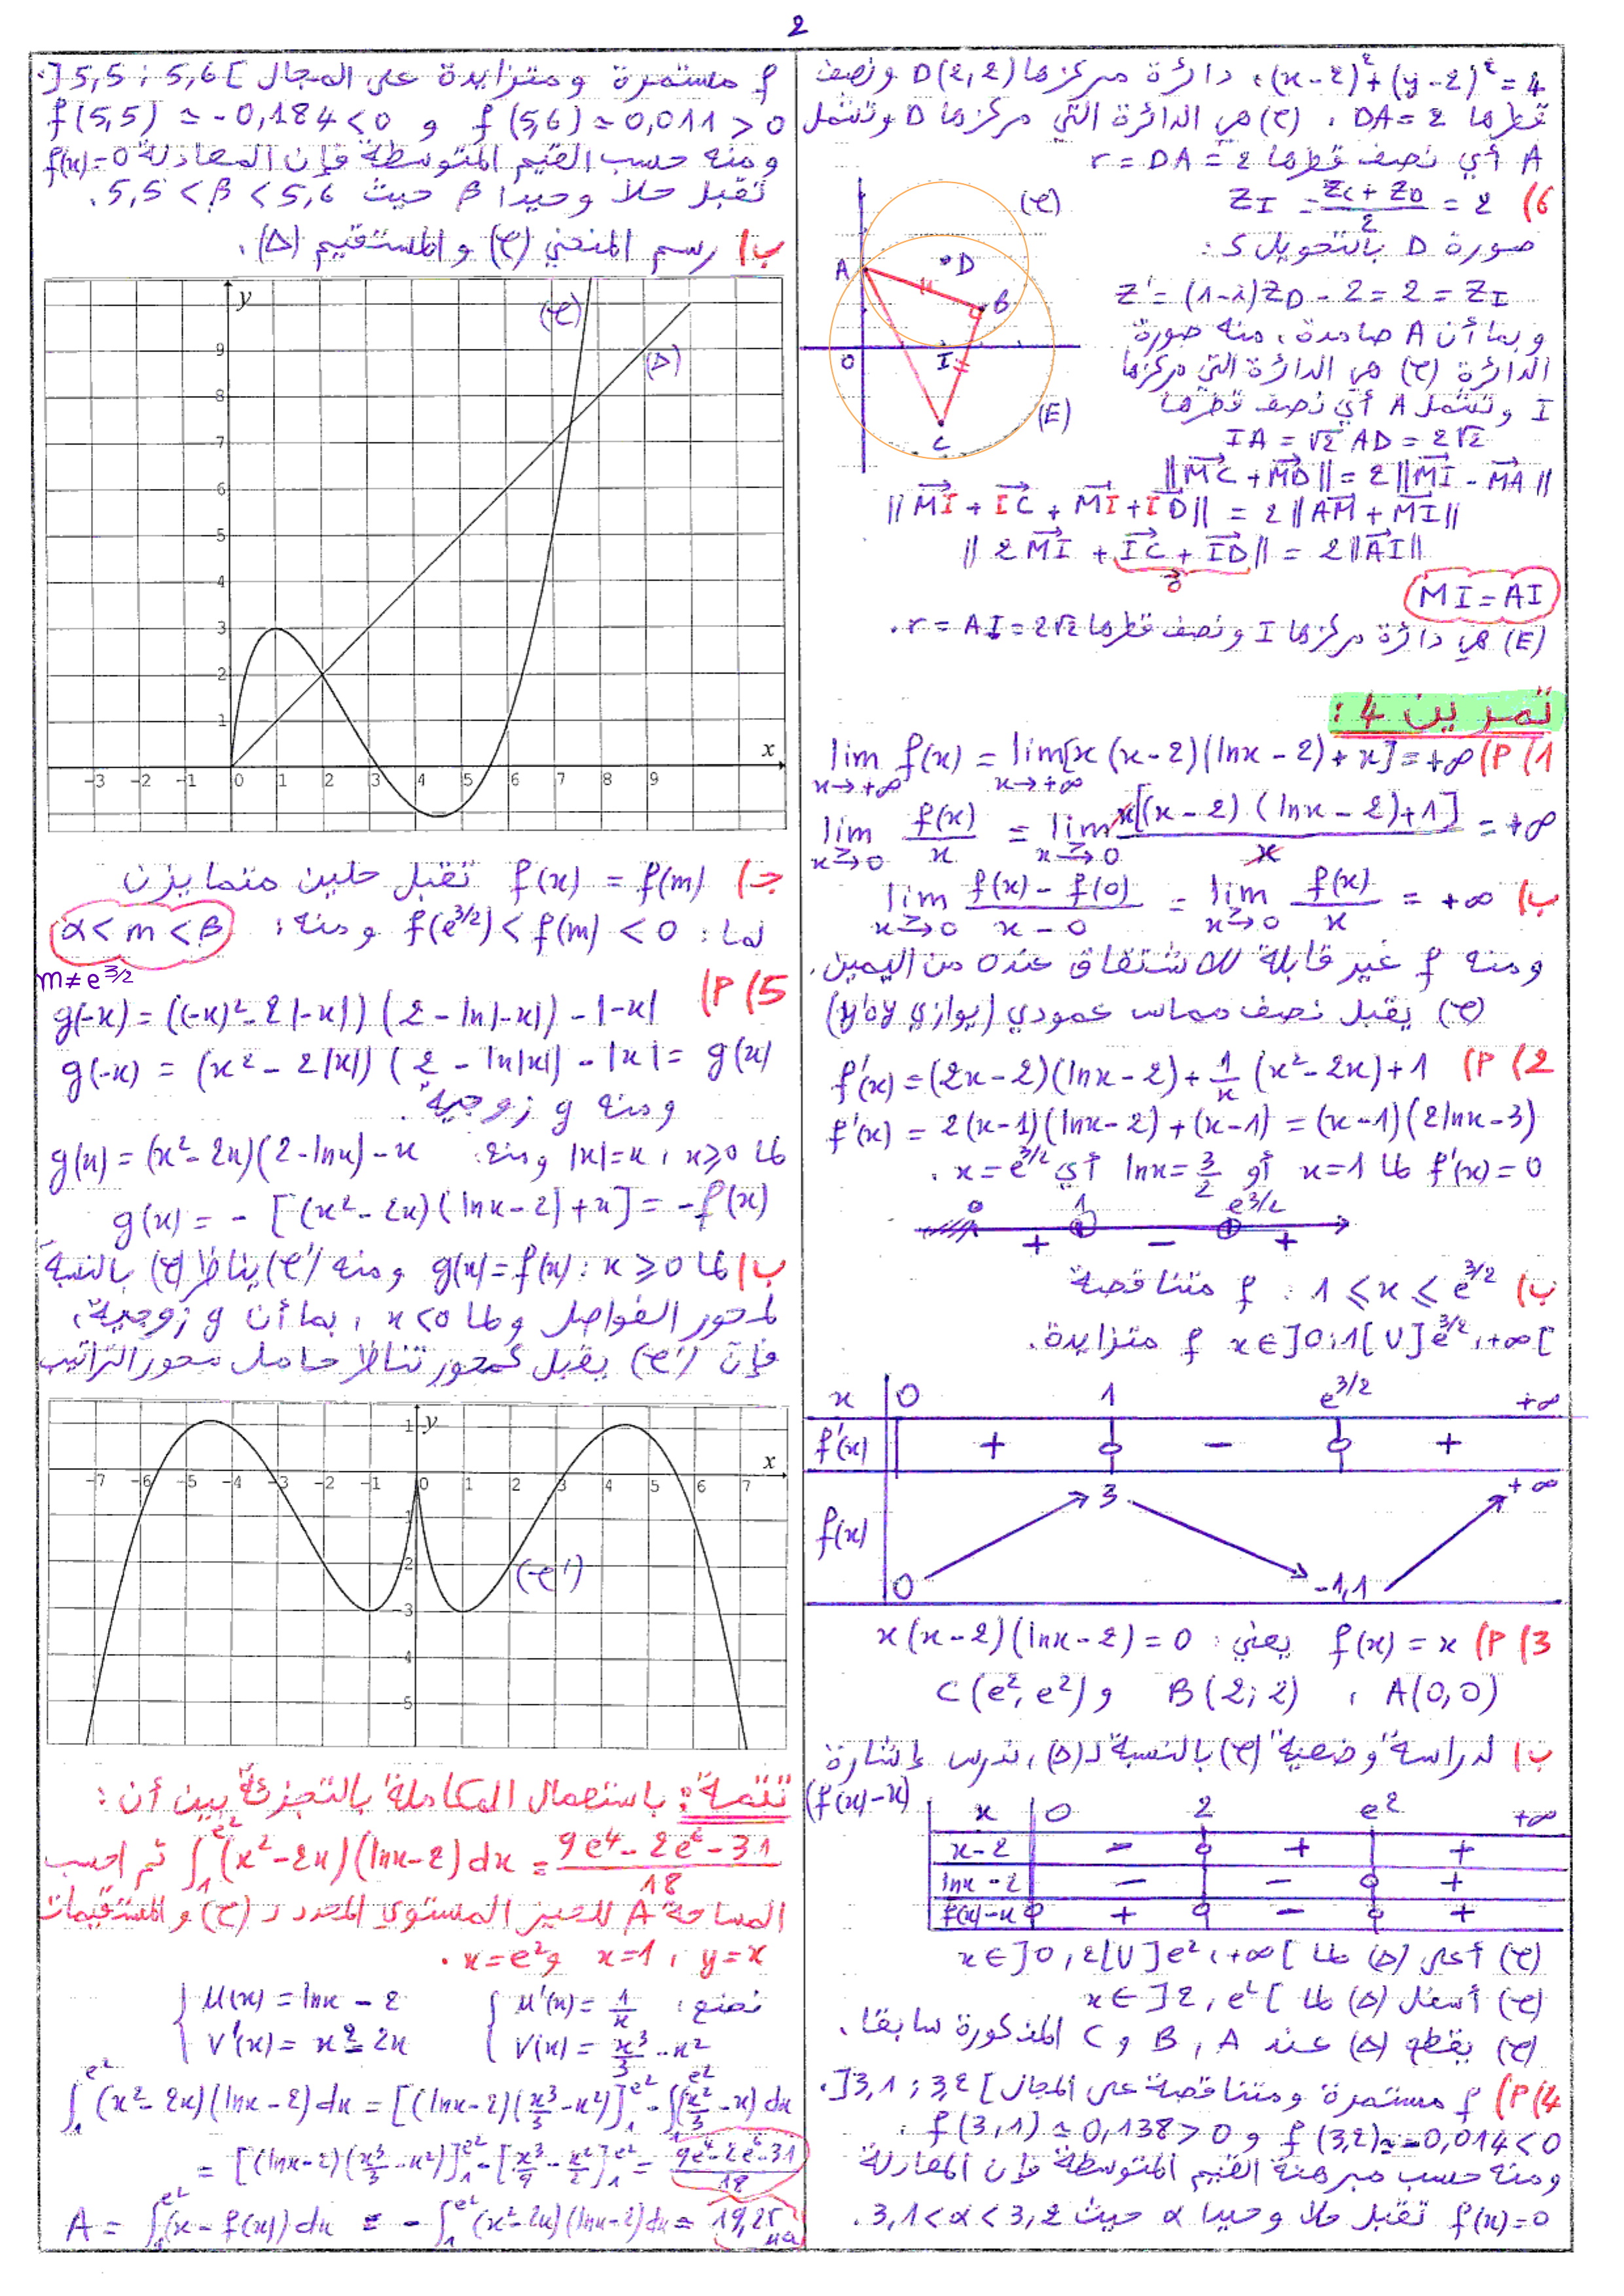 2
(x-2)²+(y-2)²=4، دائرة مركزها D(2,2) ونصف
قطرها DA=2. (C) هي الدائرة التي مركزها D وتشمل
A أي نصف قطرها r = DA = 2
6) Z_I = (Z_C + Z_D)/2 = 2
صورة D بالتحويل S:
Z' = (1-i)Z_D - 2 = 2 = Z_I
وبما أن A صامدة، منه صورة
الدائرة (C) هي الدائرة التي مركزها
I وتشمل A أي نصف قطرها
IA = √2 AD = 2√2
||MC + MD|| = 2||MI - MA||
||MI + IC + MI + ID|| = 2||AM + MI||
||2MI + IC + ID|| = 2||AI||
MI = AI
(E) هي دائرة مركزها I ونصف قطرها r = AI = 2√2.
A B C D I O (C) (E)
تمرين 4:
1) P) lim f(x) = lim[x(x-2)(lnx-2)+x] = +∞
x→+∞ x→+∞
lim f(x)/x = lim x[(x-2)(lnx-2)+1]/x = +∞
x→0 x→0
ب) lim (f(x)-f(0))/(x-0) = lim f(x)/x = +∞
x→0 x→0
ومنه f غير قابلة للاشتقاق عند 0 من اليمين.
(C) يقبل نصف مماس عمودي (يوازي y'oy)
2) P) f'(x) = (2x-2)(lnx-2) + 1/x (x²-2x)+1
f'(x) = 2(x-1)(lnx-2)+(x-1) = (x-1)(2lnx-3)
f'(x)=0 لما x=1 أو lnx=3/2 أي x=e^{3/2}.
0 1 e^{3/2}
+ - +
ب) 1 ≤ x ≤ e^{3/2} : f متناقصة
x∈]0;1[ U ]e^{3/2},+∞[ f متزايدة.
x 0 1 e^{3/2} +∞
f'(x) + 0 - 0 +
f(x) 0 3 -1,1 +∞
3) P) f(x) = x يعني: x(x-2)(lnx-2)=0
A(0,0) ، B(2;2) و C(e²,e²)
ب) لدراسة وضعية (C) بالنسبة لـ (Δ)، ندرس إشارة
(f(x)-x)
x 0 2 e² +∞
x-2 - 0 + +
lnx-2 - - 0 +
f(x)-x 0 + 0 - 0 +
(C) أعلى (Δ) لما x∈]0,2[U]e²,+∞[
(C) أسفل (Δ) لما x∈]2,e²[
(C) يقطع (Δ) عند A، B و C المذكورة سابقا.
4) P) f مستمرة ومتناقصة على المجال ]3,1;3,2[.
f(3,1) ≃ 0,138>0 و f(3,2) ≃ -0,014<0
ومنه حسب مبرهنة القيم المتوسطة فإن المعادلة
f(x)=0 تقبل حلا وحيدا α حيث 3,1<α<3,2.
f مستمرة ومتزايدة على المجال ]5,5;5,6[.
f(5,5) ≃ -0,184<0 و f(5,6) ≃ 0,011>0
ومنه حسب القيم المتوسطة فإن المعادلة f(x)=0
تقبل حلا وحيدا β حيث 5,5<β<5,6.
ب) رسم المنحني (C) والمستقيم (Δ).
y
(C)
(Δ)
9
8
7
6
5
4
3
2
1
x
-3 -2 -1 0 1 2 3 4 5 6 7 8 9
ج) f(x) = f(m) تقبل حلين متمايزن
لما: f(e^{3/2}) < f(m) < 0 ومنه: α<m<β
m≠e^{3/2}
5) P) g(-x) = ((-x)²-2|-x|)(2-ln|-x|)-|-x|
g(-x) = (x²-2|x|)(2-ln|x|)-|x| = g(x)
ومنه g زوجية.
لما x≥0، |x|=x ومنه: g(x) = (x²-2x)(2-lnx)-x
g(x) = -[(x²-2x)(lnx-2)+x] = -f(x)
ب) لما x≥0: g(x)=f(x) ومنه (C') يناظر (C) بالنسبة
لمحور الفواصل ولما x<0، بما أن g زوجية،
فإن (C') يقبل كمحور تناظر حامل محور التراتيب
y
x
1
-7 -6 -5 -4 -3 -2 -1 0 1 2 3 4 5 6 7
-1
-2
-3
-4
-5
(C')
تتمة: باستعمال المكاملة بالتجزئة بين أن:
∫₁^{e²}(x²-2x)(lnx-2)dx = (9e⁴-2e⁶-31)/18 ثم احسب
المساحة A للحيز المستوي المحدد بـ (C) والمستقيمات
y=x، x=1 و x=e².
نضع: { u'(x)=1/x { u(x)=lnx-2
v(x)=x³/3-x² v'(x)=x²-2x
∫₁^{e²}(x²-2x)(lnx-2)dx = [(lnx-2)(x³/3-x²)]₁^{e²} - ∫₁^{e²}(x²/3-x)dx
= [(lnx-2)(x³/3-x²)]₁^{e²} - [x³/9-x²/2]₁^{e²} = (9e⁴-2e⁶-31)/18
A = ∫₁^{e²}(x-f(x))dx = -∫₁^{e²}(x²-2x)(lnx-2)dx = 19,25 ua